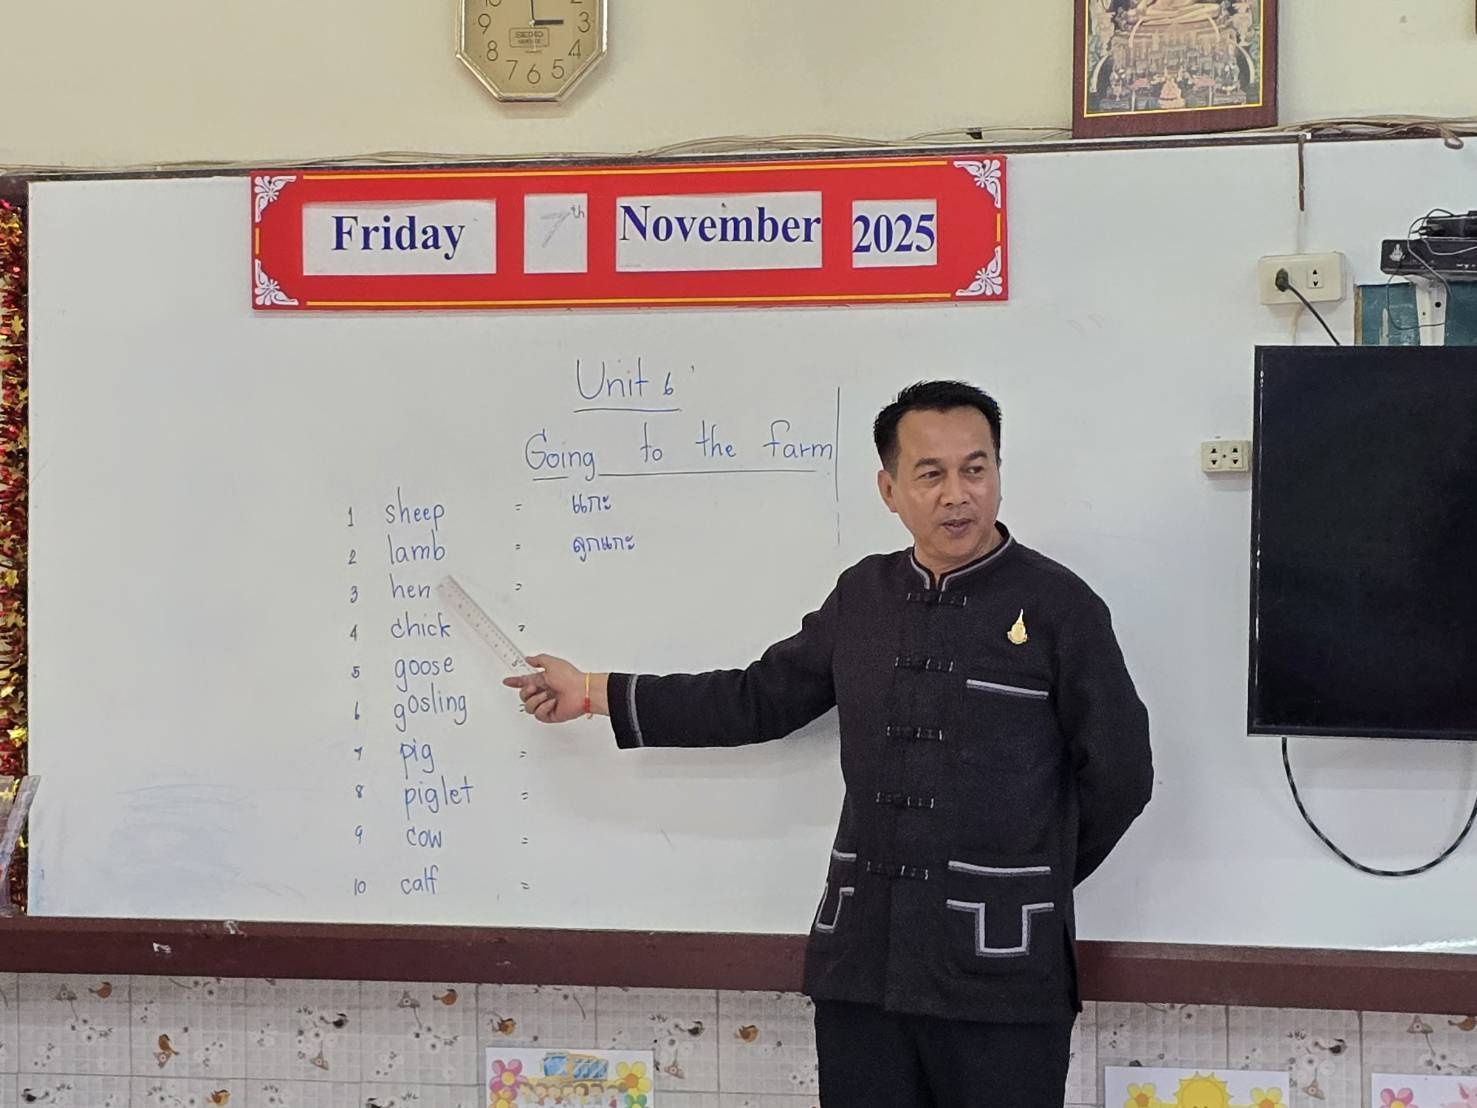 9 3
SEIKO
8 4
7 6 5
Friday 7th November 2025
Unit 6
Going to the farm
1 sheep = แกะ
2 lamb = ลูกแกะ
3 hen =
4 chick =
5 goose
6 gosling =
7 pig =
8 piglet =
9 cow =
10 calf =